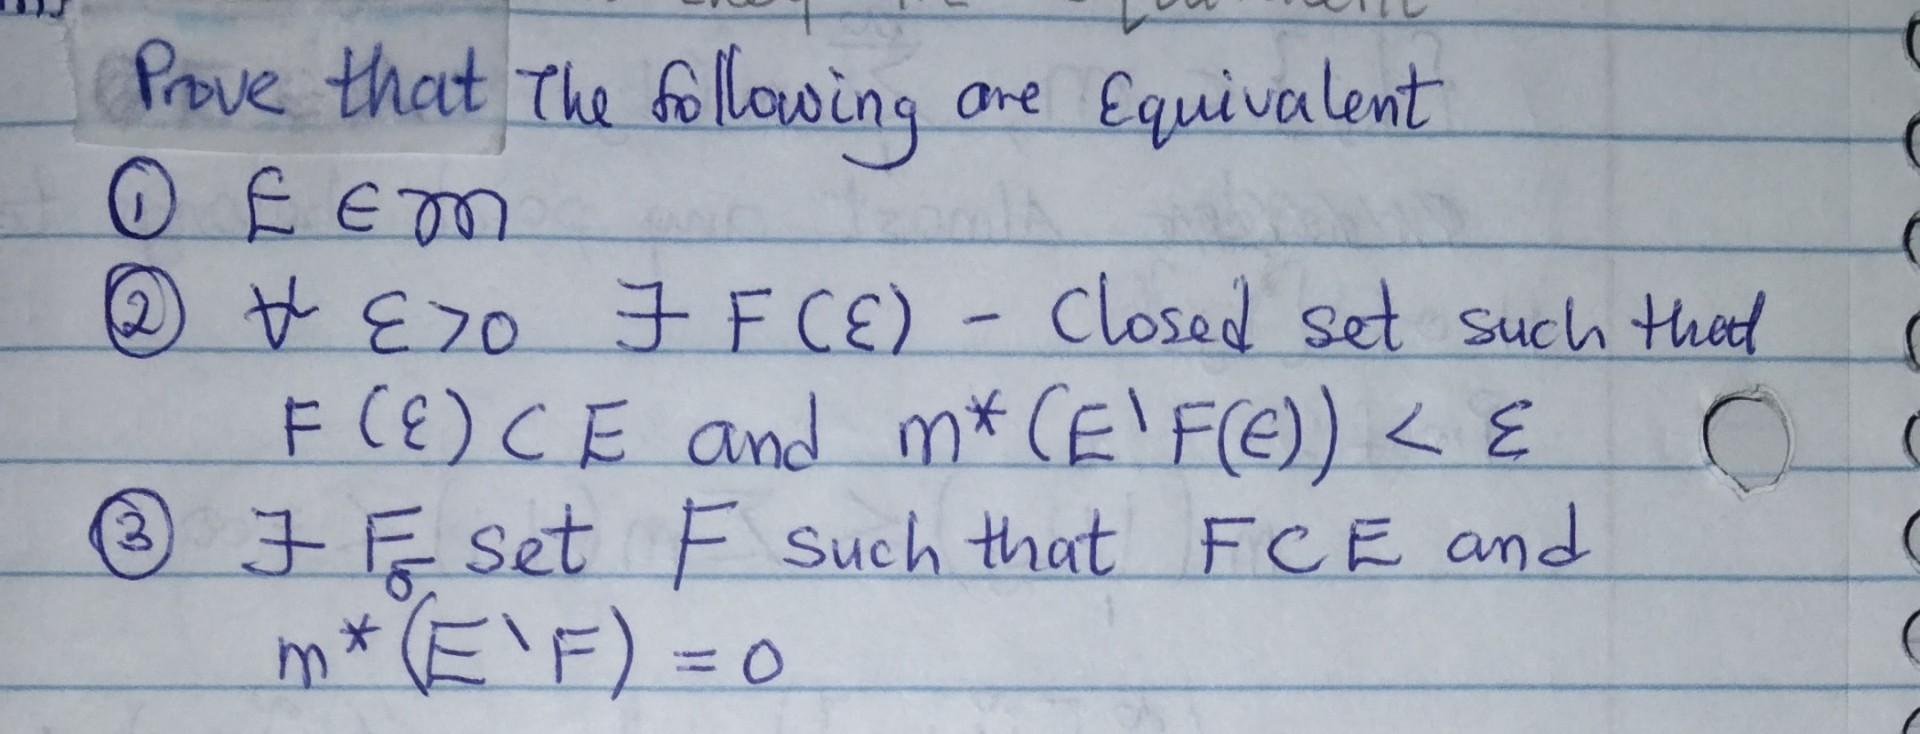 Prove that The following are Equivalent
① E ∈ m
② ∀ ε>0 ∃ F(ε) - Closed set such that
F(ε) ⊂ E and m*(E\F(ε)) < ε
③ ∃ Fσ set F such that F⊂E and
m*(E\F) = 0